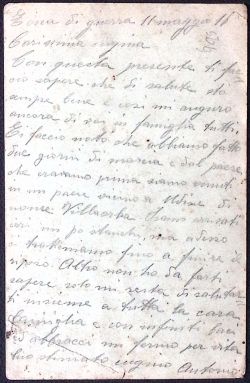 Zona di guerra 11 maggio 18
Carissima cugina
Con questa presente ti fac
cio sapere che di salute sto
sempre bene e cosi mi auguro
ancora di voi in famiglia tutti,
Ti faccio noto che abbiamo fatto
due giorni di marcia e dal paese
che eravamo prima siamo venuti
in un paese vicino a Udine di
nome Villaorba siamo arrivati
un po stanchi, ma adesso
ci fino a finire il
riposo. Altro non ho da farti
sapere solo mi resta di salutar
ti insieme a tutta la cara
famiglia e con infiniti baci
ed abbracci mi fermo per vita
tuo stimato cugino Antonio